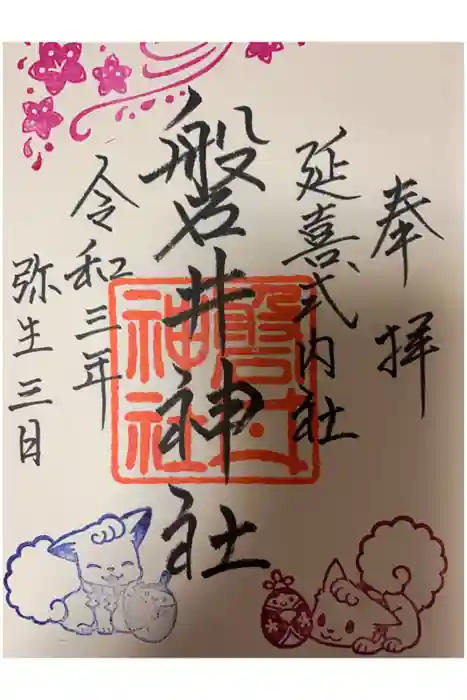 奉拝
延喜式内社
磐井神社
令和三年
弥生三日
磐井
神社